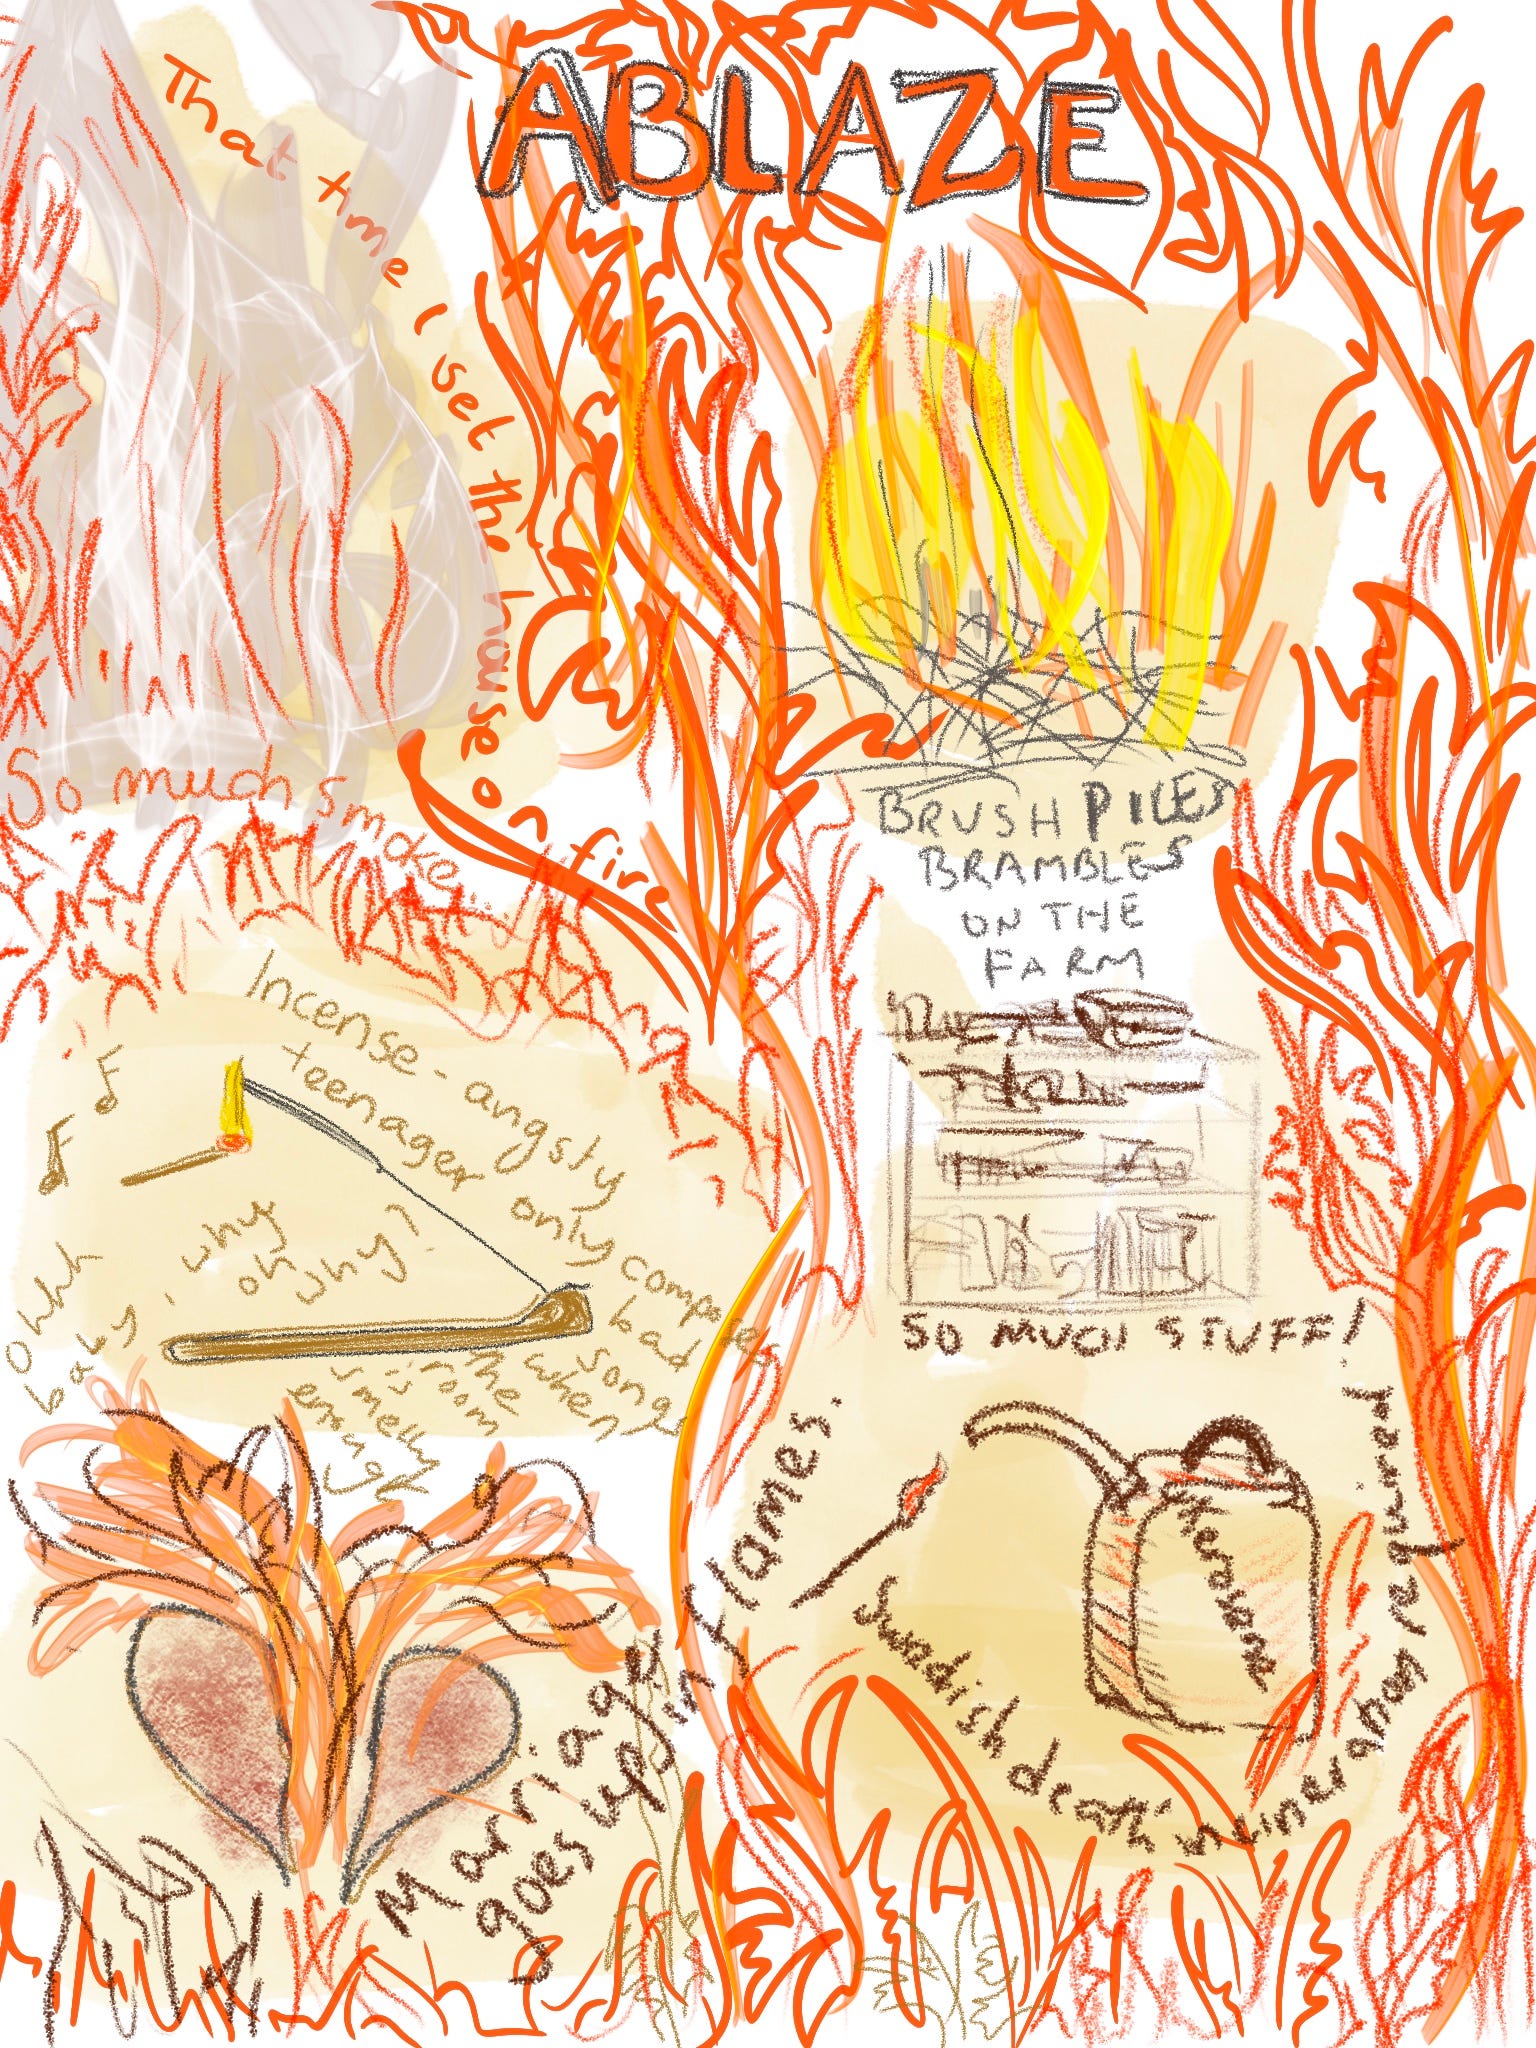 ABLAZE
That time I set the house on fire
So much smoke...
BRUSH PILES
BRAMBLES
ON THE
FARM
Incense - angsty
teenager only composes
bad
songs
when
the
room
is
smelly
enough
why
oh
why?
Ohhh
baby
SO MUCH STUFF!
Marriage
goes up in flames.
Kerosene
Swedish death incineration required